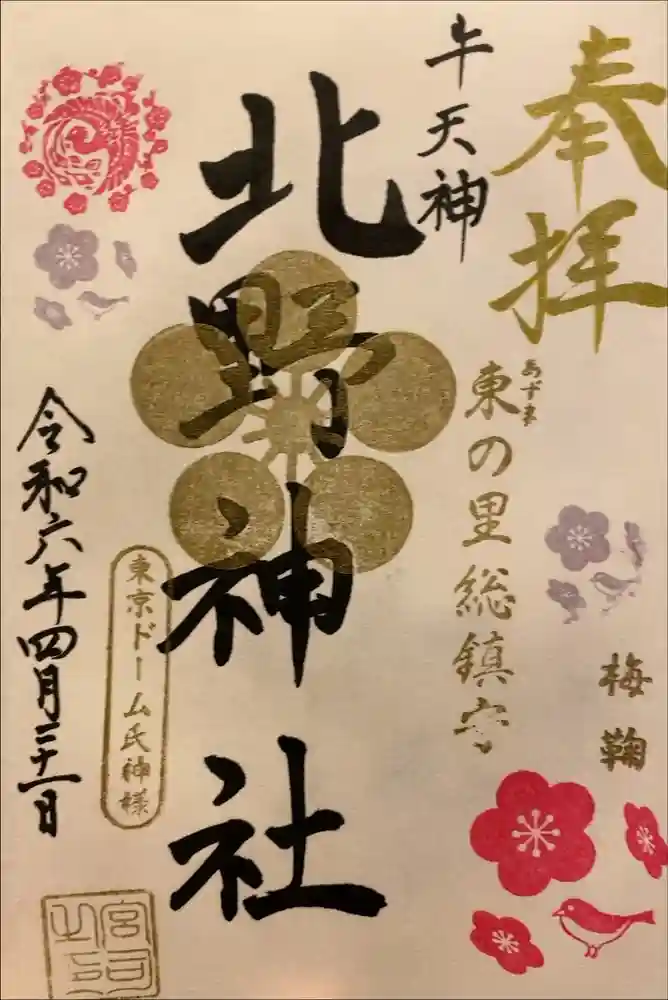 奉拝
あずま
東の里総鎮守
梅鞠
牛天神
北野神社
東京ドーム氏神様
令和六年四月二十一日
宮司之印